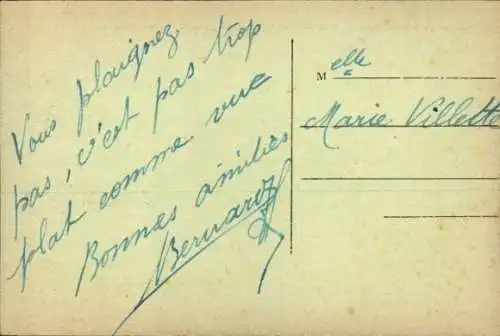 Vous plaignez
pas, c'est pas trop
plat comme vue
Bonnes amitiés
Bernard
Melle
Marie Villette